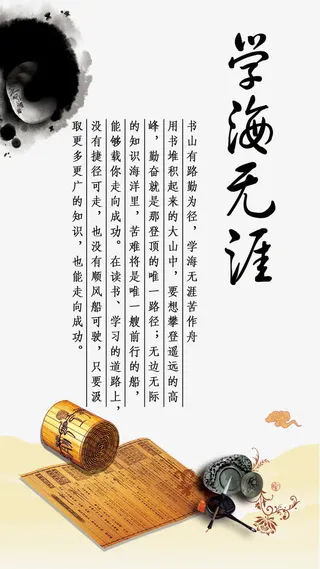 学海无涯
书山有路勤为径，学海无涯苦作舟
用书堆积起来的大山中，要想攀登遥远的高
峰，勤奋就是那登顶的唯一路径；无边无际
的知识海洋里，苦难将是唯一艘前行的船，
能够载你走向成功。在读书、学习的道路上，
没有捷径可走，也没有顺风船可驶，只要汲
取更多更广的知识，也能走向成功。